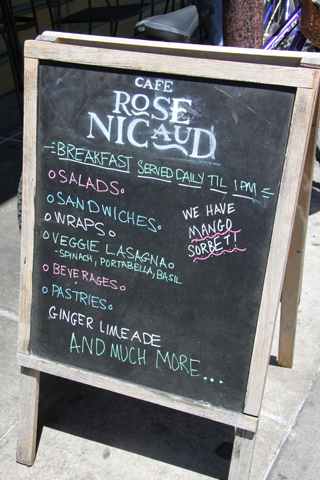 CAFE
ROSE
NICAUD
BREAKFAST SERVED DAILY TIL 1PM
SALADS
SANDWICHES
WRAPS
VEGGIE LASAGNA
-SPINACH, PORTABELLA, BASIL
BEVERAGES
PASTRIES
GINGER LIMEADE
AND MUCH MORE...
WE HAVE
MANGO
SORBET!